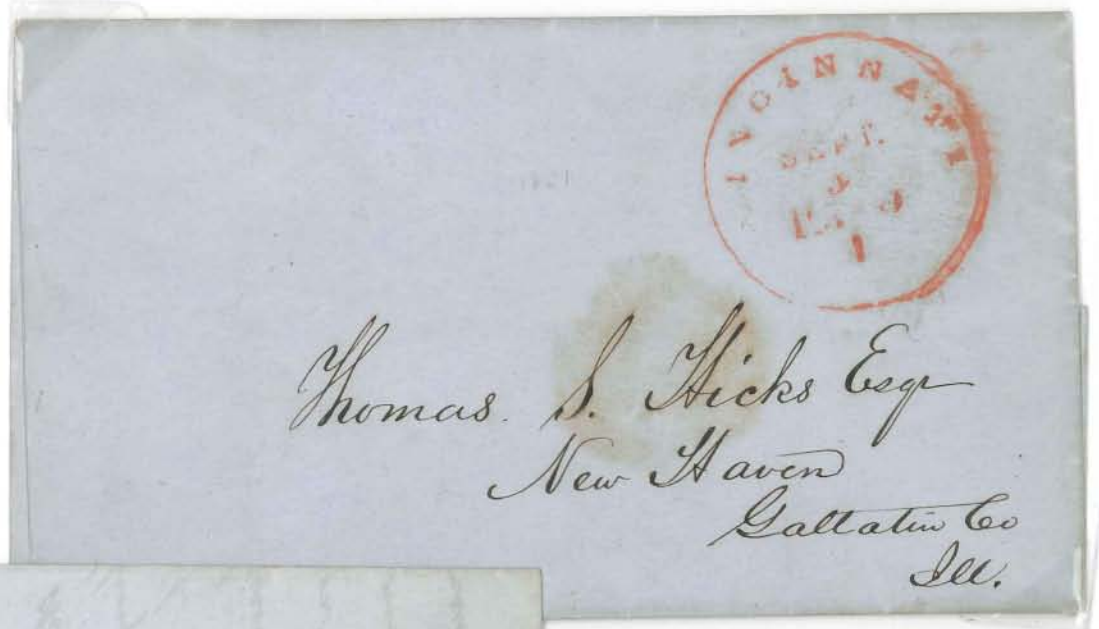 CINCINNATI
SEPT.
3
Thomas. S. Hicks Esqr
New Haven
Gallatin Co
Ill.